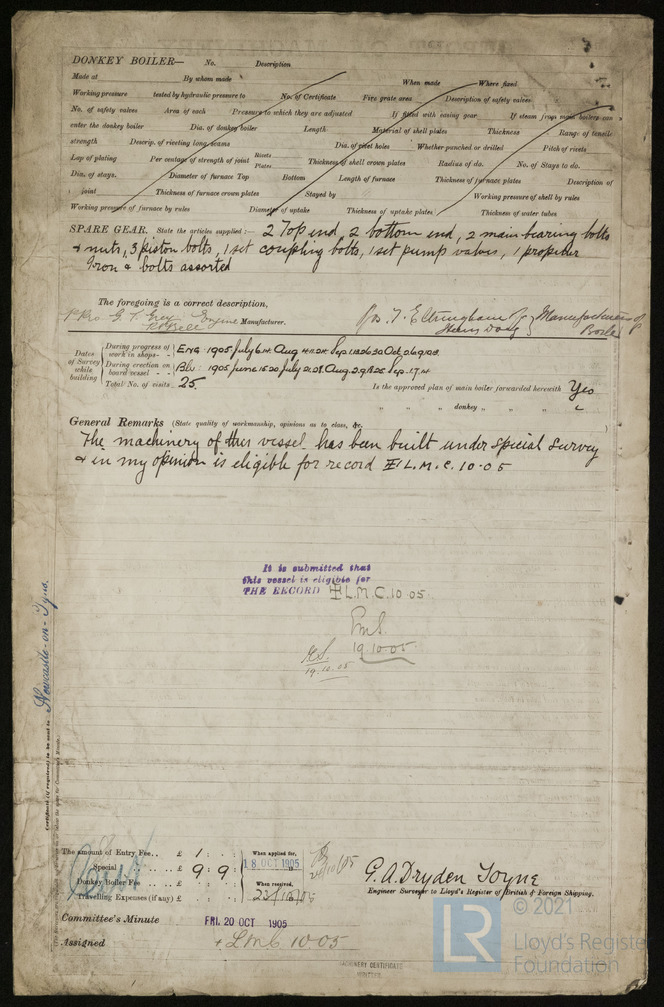 DONKEY BOILER— No. Description
Made at By whom made When made Where fixed
Working pressure tested by hydraulic pressure to No. of Certificate Fire grate area Description of safety valves
No. of safety valves Area of each Pressure to which they are adjusted If fitted with easing gear If steam from main boilers can
enter the donkey boiler Dia. of donkey boiler Length Material of shell plates Thickness Range of tensile
strength Descrip. of riveting long. seams Dia. of rivet holes Whether punched or drilled Pitch of rivets
Lap of plating Per centage of strength of joint Rivets Plates Thickness of shell crown plates Radius of do. No. of Stays to do.
Dia. of stays. Diameter of furnace Top Bottom Length of furnace Thickness of furnace plates Description of
joint Thickness of furnace crown plates Stayed by Working pressure of shell by rules
Working pressure of furnace by rules Diameter of uptake Thickness of uptake plates Thickness of water tubes
SPARE GEAR. State the articles supplied:— 2 Top end, 2 bottom end, 2 main bearing bolts
& nuts, 3 piston bolts, 1 set coupling bolts, 1 set pump valves, 1 propeller
Iron & bolts assorted
The foregoing is a correct description,
G. T. Grey Engine Manufacturer.
Jos. T. Eltringham Manufacturers of
Boiler
Dates of Survey while building
During progress of work in shops - - Eng: 1905 July 6.14. Aug 4.11.24 Sep 1.18.26.30 Oct
During erection on board vessel - - - Blr: 1905 June 15.20 July 21.28. Aug. 2.9.18.25 Sep. 1.7.14
Total No. of visits 25. Is the approved plan of main boiler forwarded herewith Yes
" " " donkey " " "
General Remarks (State quality of workmanship, opinions as to class, &c.
The machinery of this vessel has been built under special survey
& in my opinion is eligible for record L.M.C. 10.05
It is submitted that
this vessel is eligible for
THE RECORD L.M.C. 10.05
19.10.05
19.10.05
Newcastle-on-Tyne.
Certificate (if required) to be sent to
The amount of Entry Fee.. £ 1 : : When applied for,
Special .. .. £ 9 : 9 : 18 OCT 1905
Donkey Boiler Fee .. .. £ : : When received,
Travelling Expenses (if any) £ : :
G. A. Dryden Toyne
Engineer Surveyor to Lloyd's Register of British & Foreign Shipping.
Committee's Minute FRI. 20 OCT 1905
Assigned + L.M.C. 10.05
MACHINERY CERTIFICATE
WRITTEN.
LR
© 2021
Lloyd's Register
Foundation